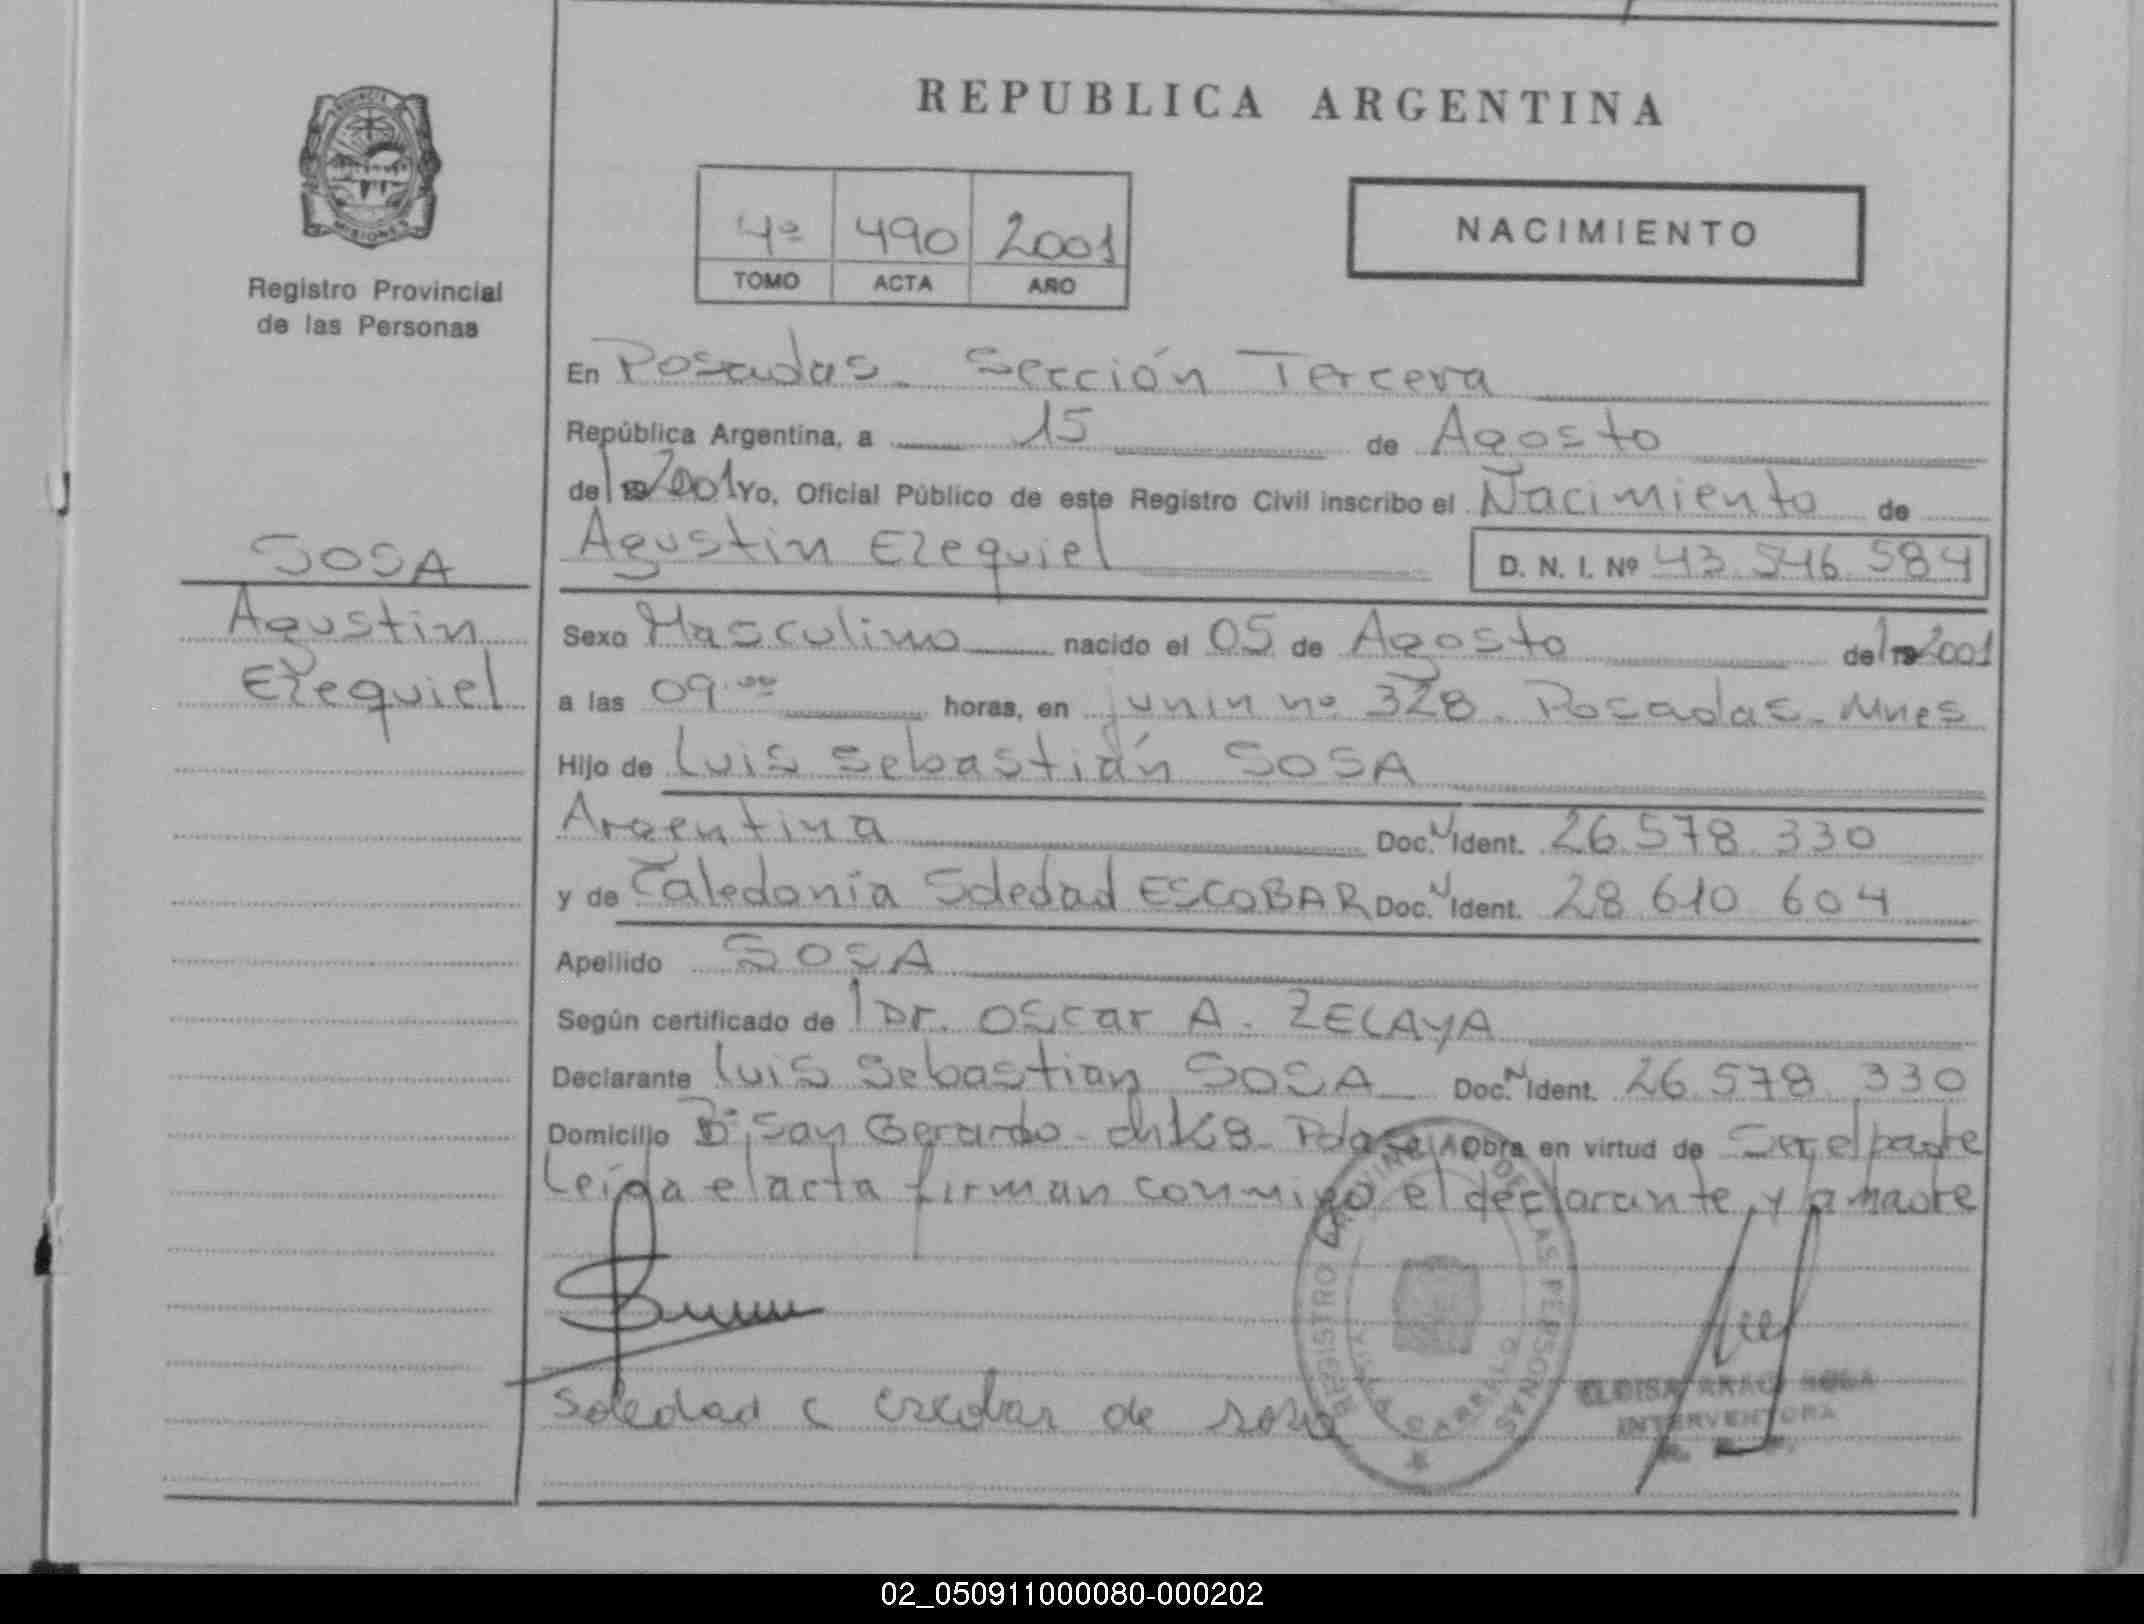 REPUBLICA ARGENTINA
PROVINCIA
MISIONES
Registro Provincial
de las Personas
4º 490 2001
TOMO ACTA AÑO
NACIMIENTO
En Posadas. Sección Tercera
República Argentina, a 15 de Agosto
del 19 2001 Yo, Oficial Público de este Registro Civil inscribo el Nacimiento de
Agustin Ezequiel D. N. I. Nº 43.546.584
SOSA
Agustin
Ezequiel
Sexo Masculino nacido el 05 de Agosto del 19 2001
a las 09.00 horas, en junin nº 328. Posadas. Mnes
Hijo de Luis Sebastián SOSA
Argentina Doc. N Ident. 26.578.330
y de Caledonia Soledad ESCOBAR Doc. N Ident. 28.610.604
Apellido SOSA
Según certificado de l Dr. Oscar A. ZELAYA
Declarante Luis Sebastian SOSA Doc. N Ident. 26.578.330
Domicilio Bº San Gerardo - Obra en virtud de Ser el padre
Leída el acta firman conmigo el declarante y la madre
REGISTRO PROVINCIAL DE LAS PERSONAS
CARRILLO
Soledad C Escobar de Sosa
ELOISA ARACI SOSA
INTERVENTORA
02_050911000080-000202